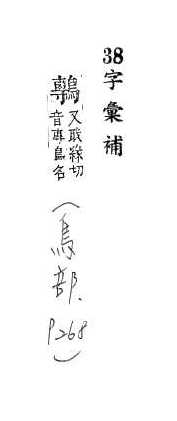 38字彙補
鷒
又職緣切
音專鳥名
(鳥部. P268)